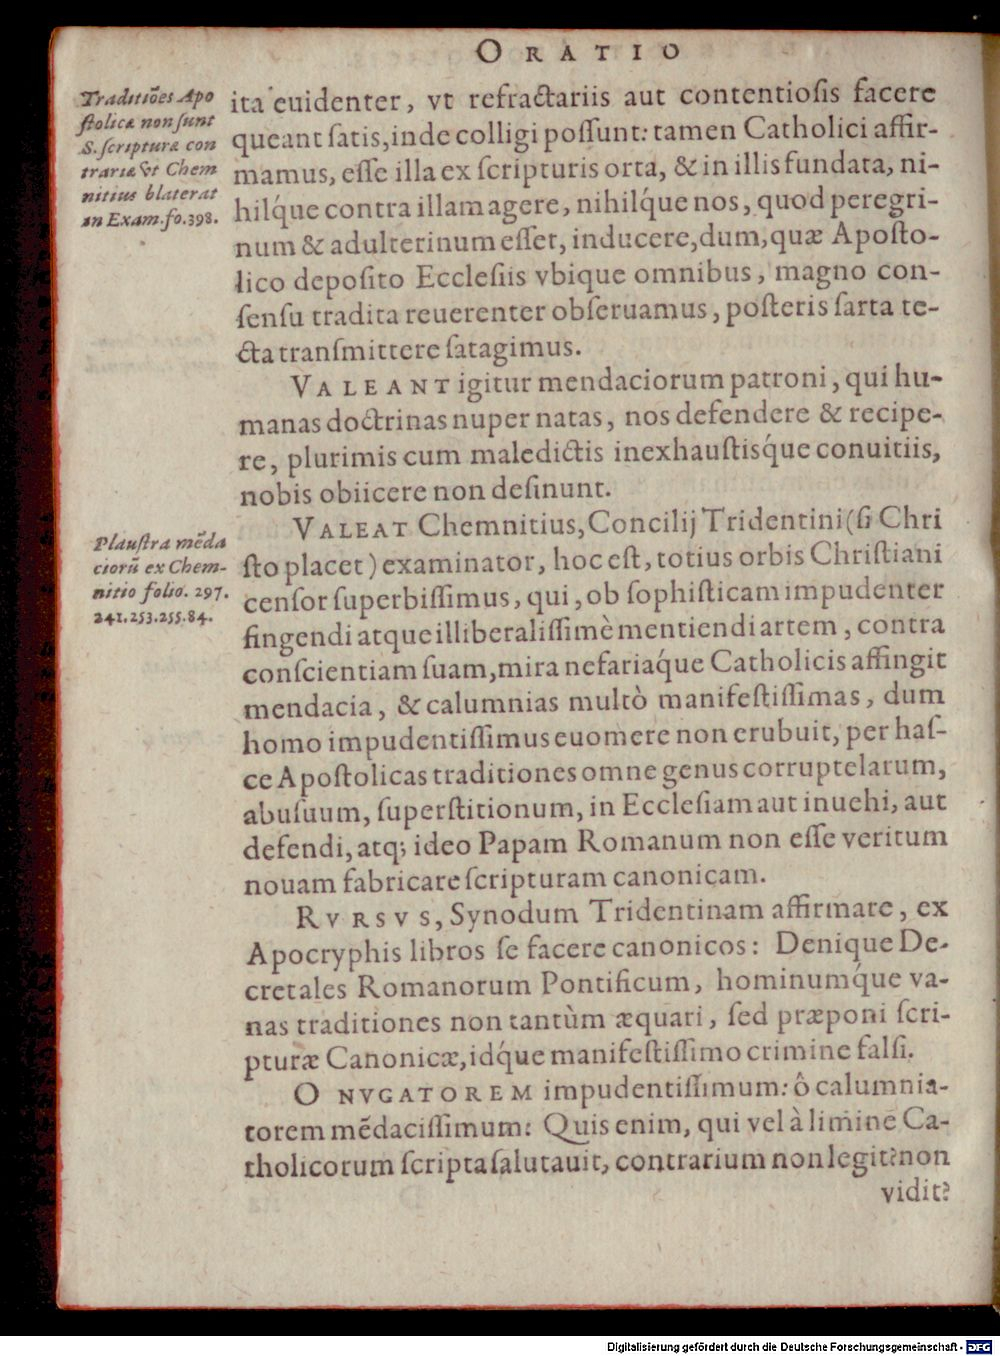 ORATIO
Traditiões Apo
stolicæ non sunt
S. scripturæ con
trariæ vt Chem
nitius blaterat
in Exam. fo. 398.
ita euidenter, vt refractariis aut contentiosis facere
queant satis, inde colligi possunt: tamen Catholici affir-
mamus, esse illa ex scripturis orta, & in illis fundata, ni-
hilq́ue contra illam agere, nihilq́ue nos, quod peregri-
num & adulterinum esset, inducere, dum, quæ Aposto-
lico deposito Ecclesiis vbique omnibus, magno con-
sensu tradita reuerenter obseruamus, posteris sarta te-
cta transmittere satagimus.
VALEANT igitur mendaciorum patroni, qui hu-
manas doctrinas nuper natas, nos defendere & recipe-
re, plurimis cum maledictis inexhaustisq́ue conuitiis,
nobis obiicere non desinunt.
Plaustra mẽda
ciorũ ex Chem-
nitio folio. 297.
241. 253. 255. 84.
VALEAT Chemnitius, Concilij Tridentini (si Chri
sto placet) examinator, hoc est, totius orbis Christiani
censor superbissimus, qui, ob sophisticam impudenter
fingendi atque illiberalissimè mentiendi artem, contra
conscientiam suam, mira nefariaq́ue Catholicis affingit
mendacia, & calumnias multò manifestissimas, dum
homo impudentissimus euomere non erubuit, per has-
ce Apostolicas traditiones omne genus corruptelarum,
abusuum, superstitionum, in Ecclesiam aut inuehi, aut
defendi, atq; ideo Papam Romanum non esse veritum
nouam fabricare scripturam canonicam.
RVRSVS, Synodum Tridentinam affirmare, ex
Apocryphis libros se facere canonicos: Denique De-
cretales Romanorum Pontificum, hominumq́ue va-
nas traditiones non tantùm æquari, sed præponi scri-
pturæ Canonicæ, idq́ue manifestissimo crimine falsi.
O NVGATOREM impudentissimum: ô calumnia-
torem mẽdacissimum: Quis enim, qui vel à limine Ca-
tholicorum scripta salutauit, contrarium non legit? non
vidit?
Digitalisierung gefördert durch die Deutsche Forschungsgemeinschaft - DFG